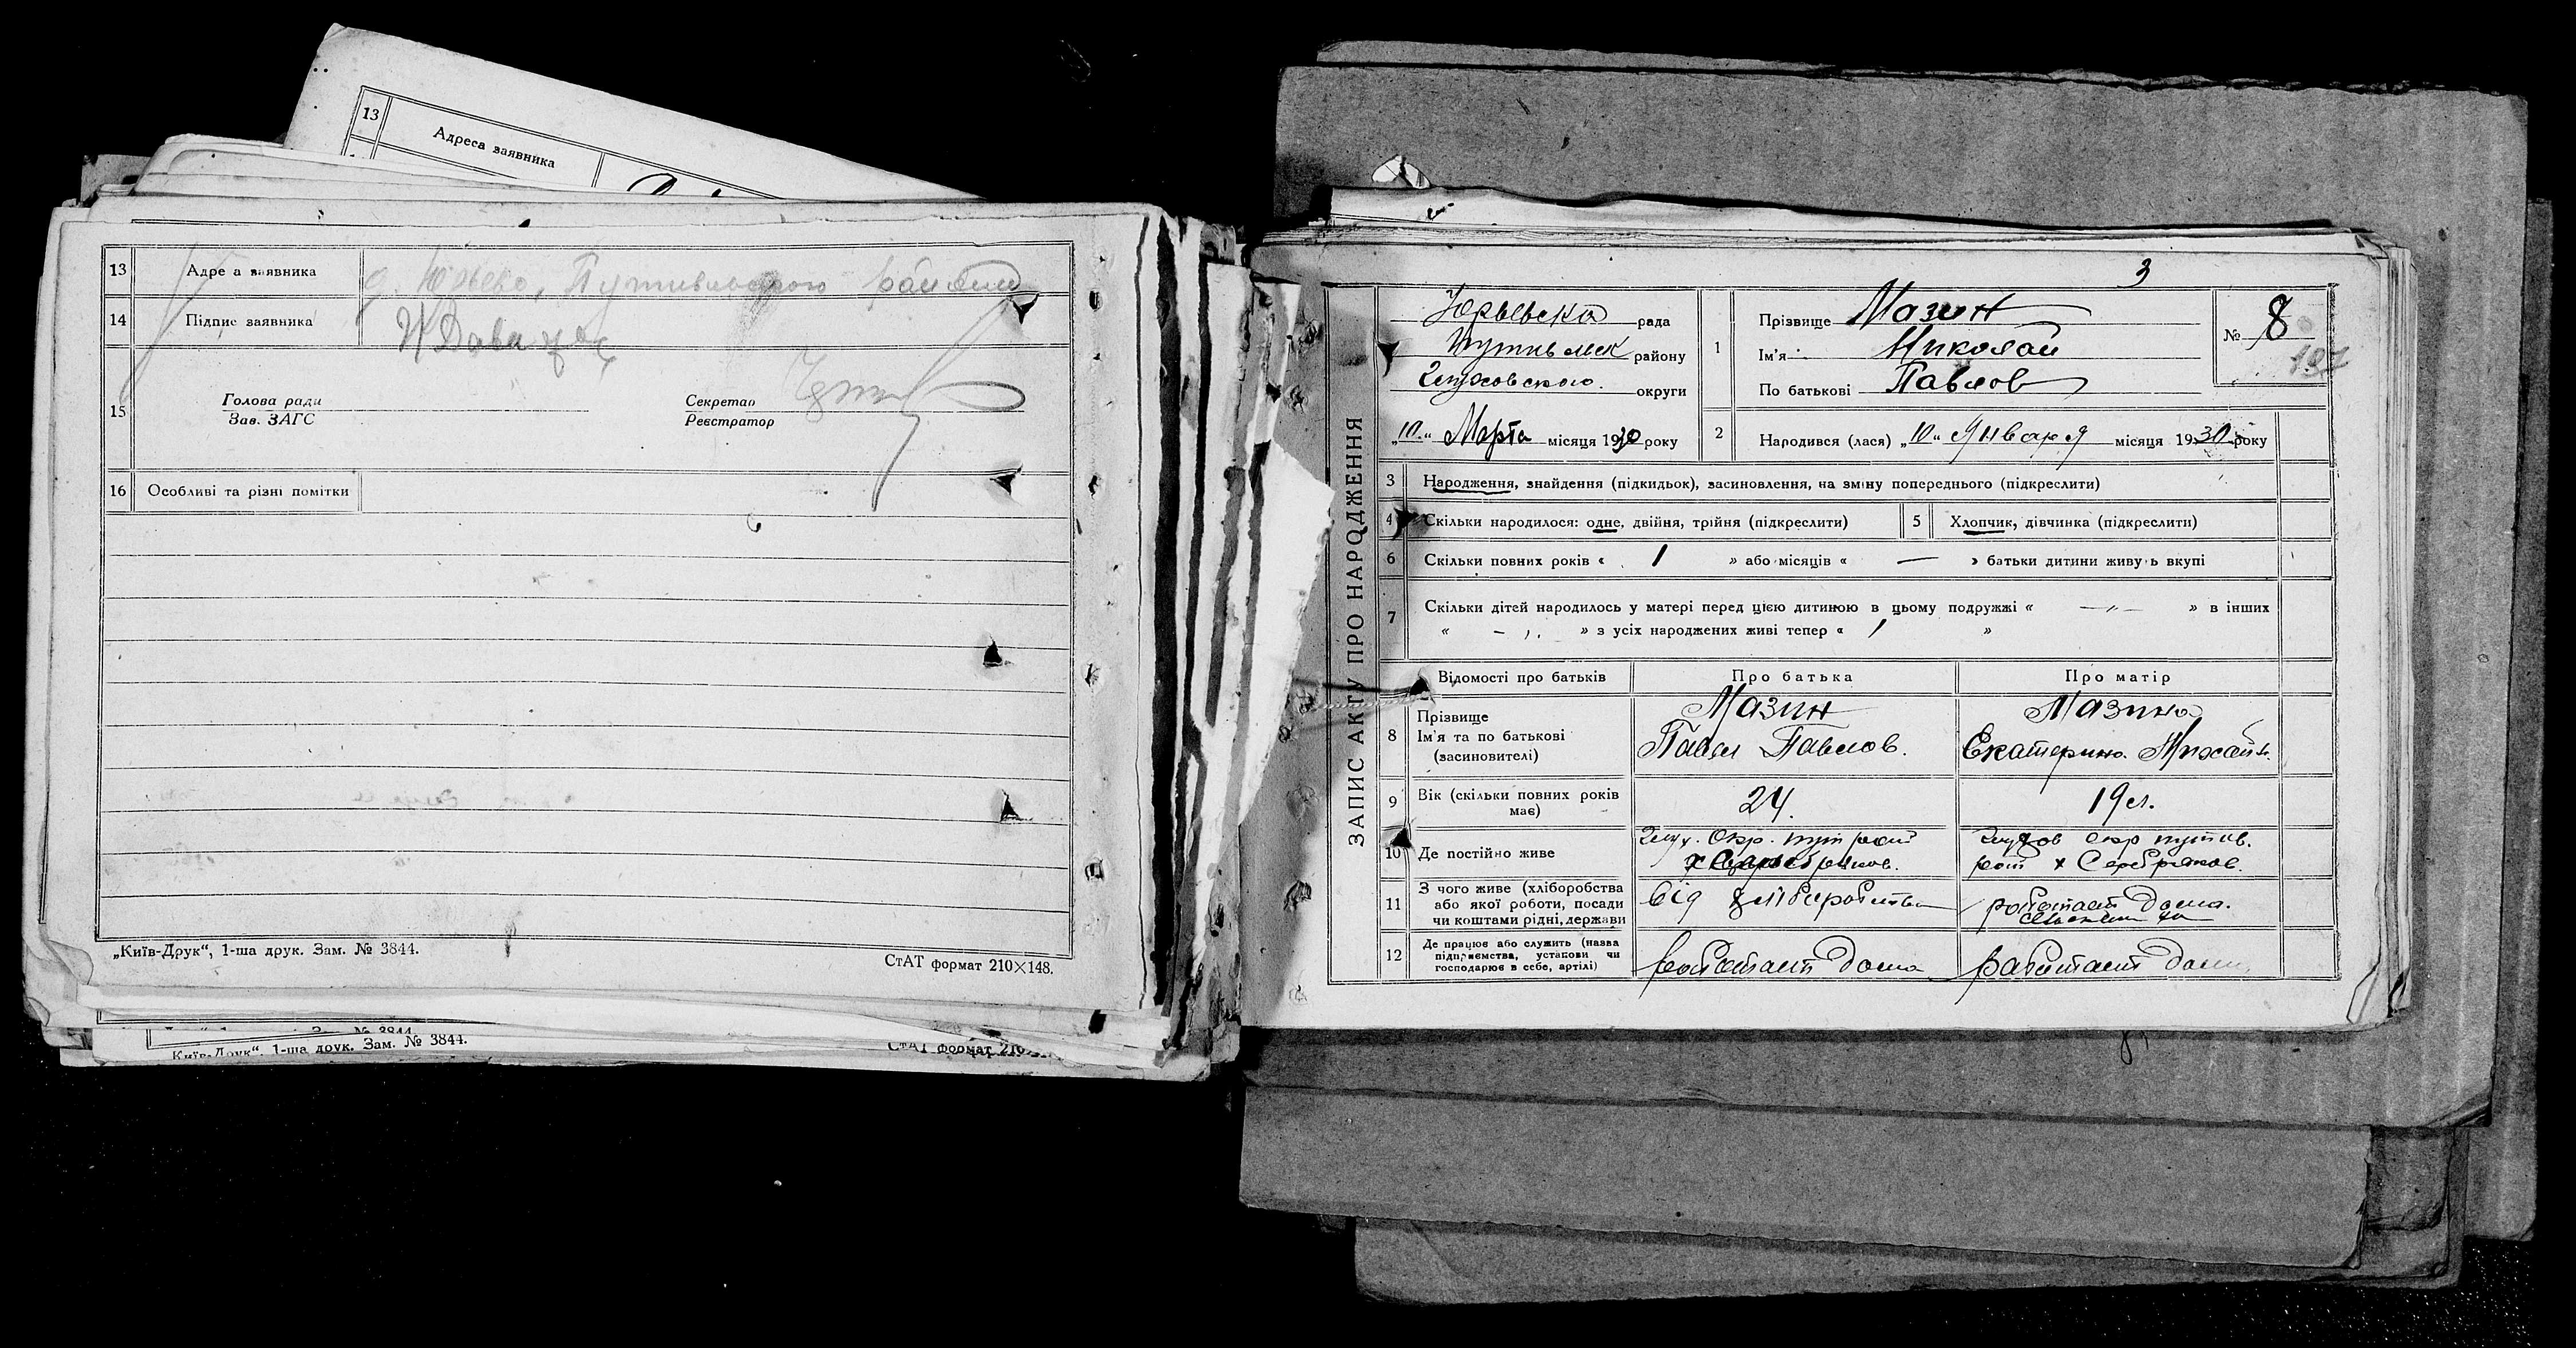 13 Адреса заявника
13 Адре а заявника д. Юрьево, Путивльского района
14 Підпис заявника
15 Голова ради Секретар
Зав. ЗАГС Реєстратор
16 Особливі та різні помітки
„Київ-Друк“, 1-ша друк. Зам. № 3844.
СтАТ формат 210×148.
Київ-Друк“, 1-ша друк. Зам. № 3844.
СтАТ формат 210
3
ЗАПИС АКТУ ПРО НАРОДЖЕННЯ
Юрьевска рада
Путивльск району
Глуховского округи
„10“ Марта місяця 1930 року
1 Прізвище Мазин
Ім'я Николай
По батькові Павлов
№ 8
197
2 Народився (лася) „10“ Января місяця 1930 року
3 Народження, знайдення (підкидьок), засиновлення, на зміну попереднього (підкреслити)
4 Скільки народилося: одне, двійня, трійня (підкреслити) 5 Хлопчик, дівчинка (підкреслити)
6 Скільки повних років « 1 » або місяців « — » батьки дитини живу ь вкупі
7 Скільки дітей народилось у матері перед цією дитиною в цьому подружжі « —„— » в інших
« —„ » з усіх народжених живі тепер « 1 »
Відомості про батьків Про батька Про матір
8 Прізвище Мазин Мазина
Ім'я та по батькові Павел Павлов. Екатерина Михайл.
(засновителі)
9 Вік (скільки повних років має) 24. 19 л.
10 Де постійно живе Глух. Окр. пут рай х Серебряков. Глухов окр путив. рай х Серебряков.
11 З чого живе (хліборобства або якої роботи, посади чи коштами рідні, держави від хліборобства работает дома.
12 Де працює або служить (назва підприємства, установи чи господарює в себе, артілі) работает дома работает дома